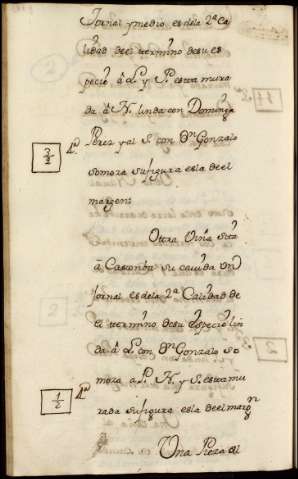 Jornal y medio es de la 2ª Ca
lidad de el termino de su es
pecie a L y P esta mura
da a N. linda con Dominga
Perez y al S. con Dn Gonzalo
Somoza su figura es la de el
margen:
Otra Viña sita
a su cavida un
Jornal es de la 2ª Calidad de
el termino de su especie lin
da a L con Dn Gonzalo So
moza a P. N. y S. esta mu
rada su figura es la de el margn
Una Pieza al
3/2
1/2